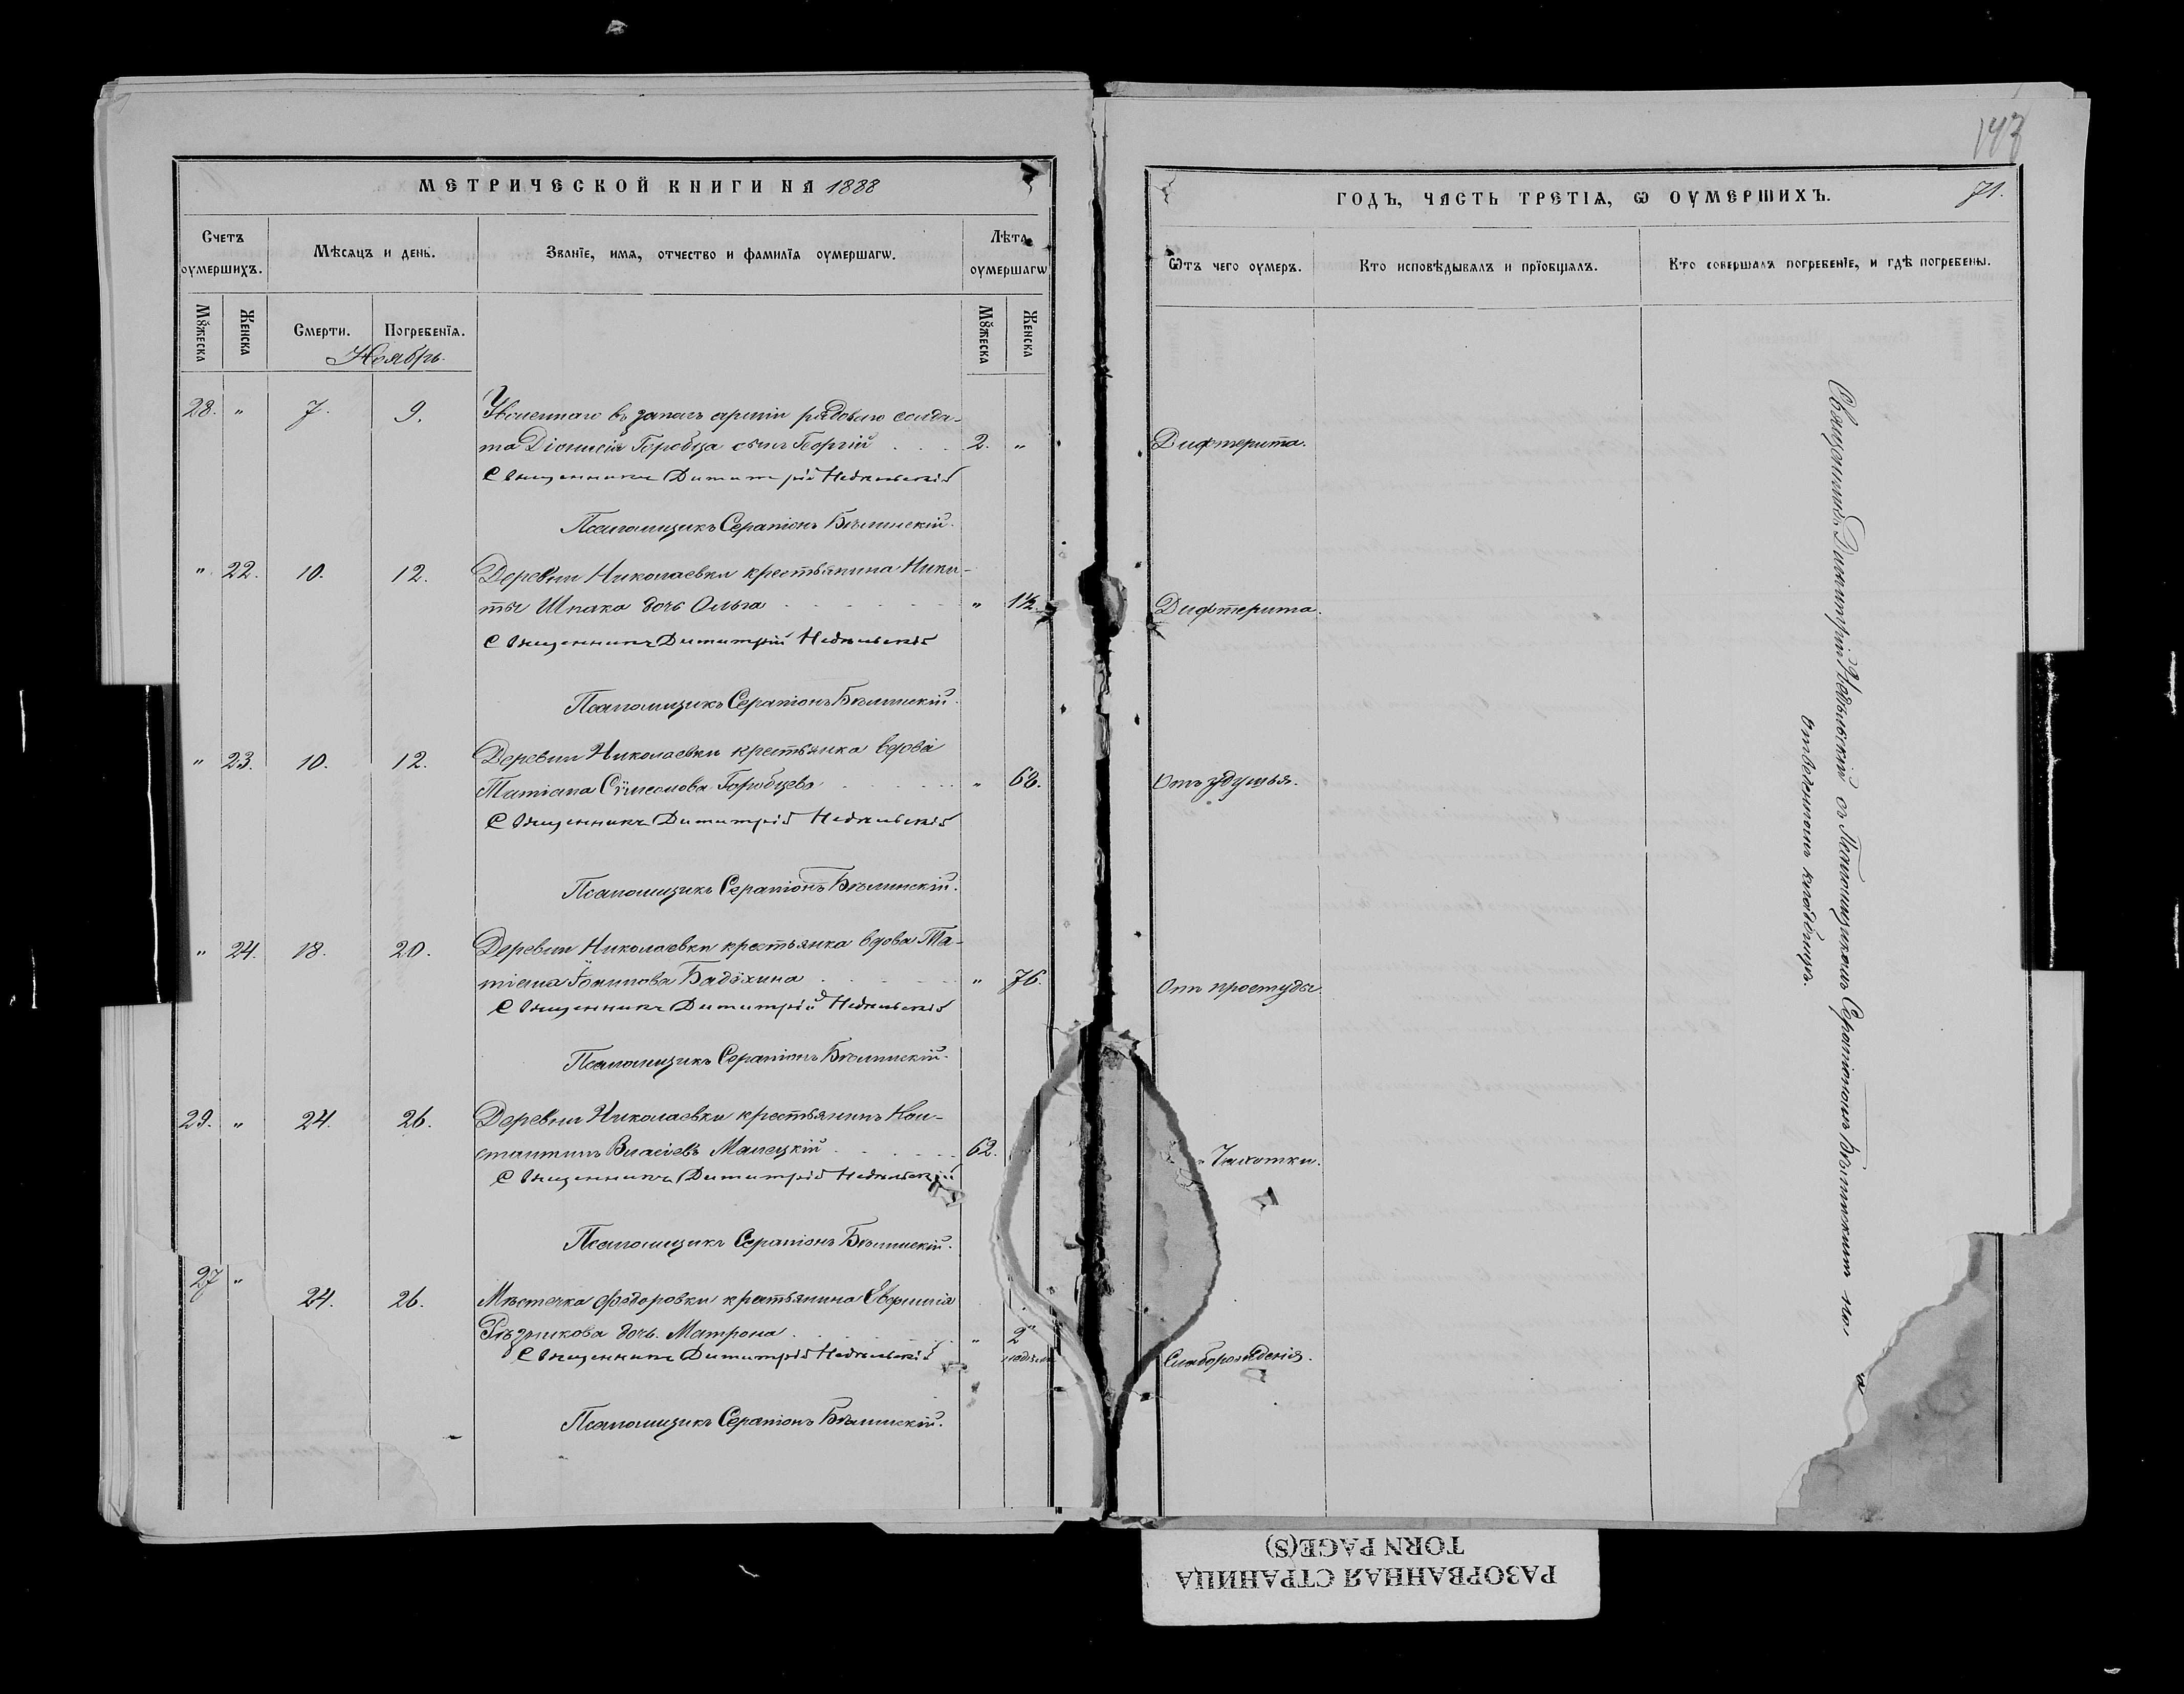 147
МЕТРИЧЕСКОЙ КНИГИ НА 1888
ГОДЪ, ЧАСТЬ ТРЕТІѦ, Ѡ ОУМЕРШИХЪ.
71.
Счетъ оумершихъ.
Мѣсѧцъ и день.
Званїе, имѧ, отчество и фамилїѧ оумершагѡ.
Лѣта оумершагѡ
Ѿтъ чего оумеръ.
Кто исповѣдывалъ и прїобщалъ.
Кто совершалъ погребенїе, и гдѣ погребены.
Мꙋжеска
Женска
Смерти.
Погребенїѧ.
Мꙋжеска
Женска
Ноябрь.
28. " 7. 9. Уволеннаго въ запасъ арміи рядоваго солда-
та Діонисія Горобца сынъ Георгій . . . 2. " Дифтерита.
Священникъ Димитрій Недѣльскій
Псаломщикъ Серапіонъ Бѣлинскій.
" 22. 10. 12. Деревни Николаевки крестьянина Ники-
ты Шпака дочь Ольга " 1½ Дифтерита.
Священникъ Димитрій Недѣльскій
Псаломщикъ Серапіонъ Бѣлинскій.
" 23. 10. 12. Деревни Николаевки крестьянка вдова
Татіана Сѵмеонова Горобцева " 68. Отъ удушья.
Священникъ Димитрій Недѣльскій
Псаломщикъ Серапіонъ Бѣлинскій.
" 24. 18. 20. Деревни Николаевки крестьянка вдова Та-
тіана " 76. Отъ простуды.
Священникъ Димитрій Недѣльскій
Псаломщикъ Серапіонъ Бѣлинскій.
29. " 24. 26. Деревни Николаевки крестьянинъ Кон-
стантинъ Власіевъ Малецкій 62. Чахотки.
Священникъ Димитрій Недѣльскій
Псаломщикъ Серапіонъ Бѣлинскій.
27 " 24. 26. Мѣстечка Федоровки крестьянина Евфимія
Рѣзникова дочь Матрона " 2
Священникъ Димитрій Недѣльскій недѣли Слаборожденія.
Псаломщикъ Серапіонъ Бѣлинскій.
Священникъ Димитрій Недѣльскій съ Псаломщикомъ Серапіономъ Бѣлинскимъ на
отведенномъ кладбищѣ.
РАЗОРВАННАЯ СТРАНИЦА
TORN PAGE(S)